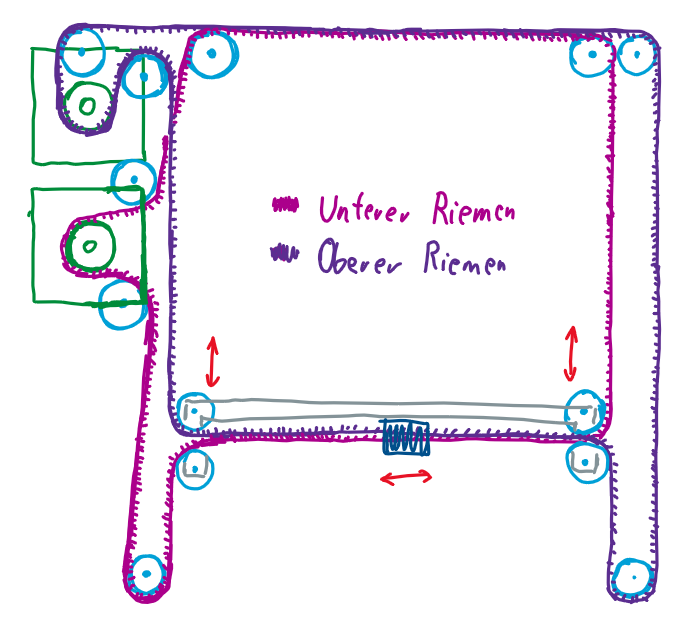 Unterer Riemen
Oberer Riemen